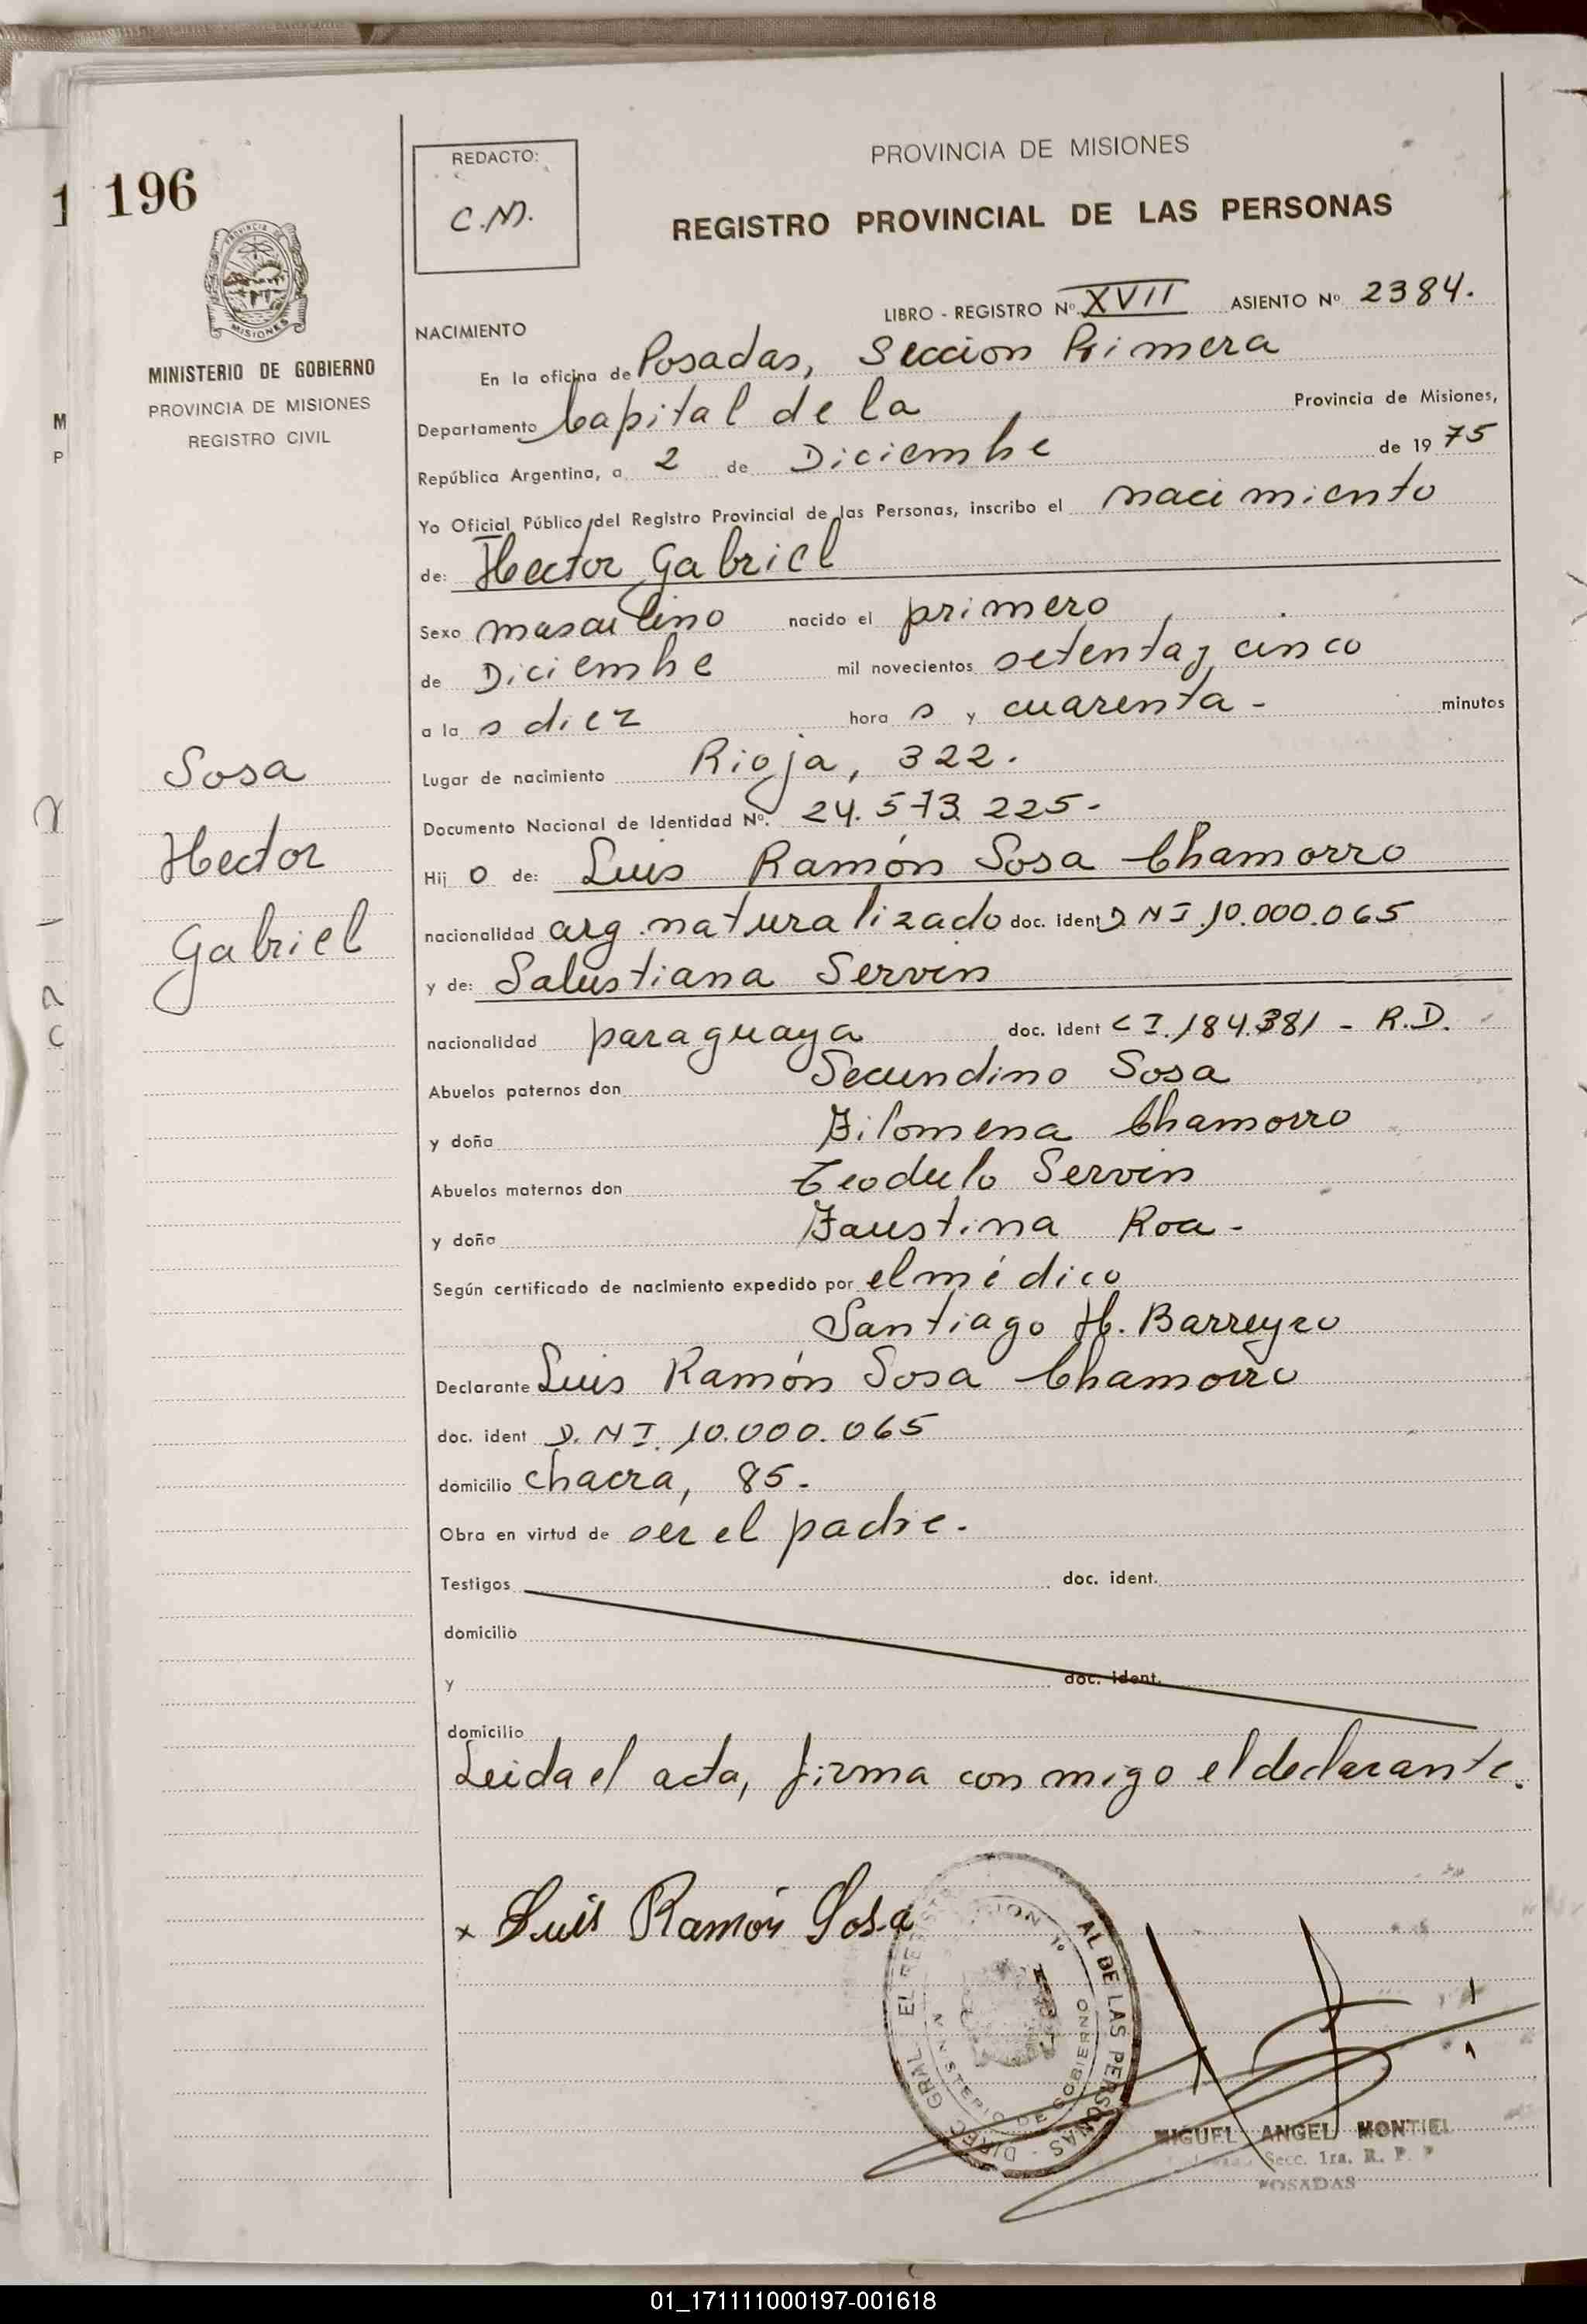 1 196
REDACTO:
C.M.
PROVINCIA DE MISIONES
REGISTRO PROVINCIAL DE LAS PERSONAS
PROVINCIA DE
MISIONES
MINISTERIO DE GOBIERNO
PROVINCIA DE MISIONES
REGISTRO CIVIL
M
P
LIBRO - REGISTRO Nº XVII ASIENTO Nº 2384.
NACIMIENTO
En la oficina de Posadas, Seccion Primera
Departamento Capital de la Provincia de Misiones,
República Argentina, a 2 de Diciembre de 1975
Yo Oficial Público del Registro Provincial de las Personas, inscribo el nacimiento
de: Hector Gabriel
Sexo masculino nacido el primero
de Diciembre mil novecientos setenta y cinco
a las diez horas y cuarenta - minutos
Lugar de nacimiento Rioja, 322.
Documento Nacional de Identidad Nº. 24.573.225-
Hijo de: Luis Ramón Sosa Chamorro
nacionalidad arg. naturalizado doc. ident D.N.I. 10.000.065
y de: Salustiana Servin
nacionalidad paraguaya doc. ident C.I. 184.381 - R.D.
Abuelos paternos don Secundino Sosa
y doña Filomena Chamorro
Abuelos maternos don Teodulo Servin
y doña Faustina Roa -
Según certificado de nacimiento expedido por el médico
Santiago H. Barreyro
Declarante Luis Ramón Sosa Chamorro
doc. ident D.N.I. 10.000.065
domicilio chacra, 85.
Obra en virtud de ser el padre.
Testigos doc. ident.
domicilio
y doc. ident.
domicilio
Leida el acta, firma conmigo el declarante.
Sosa
Hector
Gabriel
x Luis Ramón Sosa
DIREC. GRAL. EL REGISTRO AL DE LAS PERSONAS
MINISTERIO DE GOBIERNO
MIGUEL ANGEL MONTIEL
Secc. 1ra. R. P. P
POSADAS
01_171111000197-001618